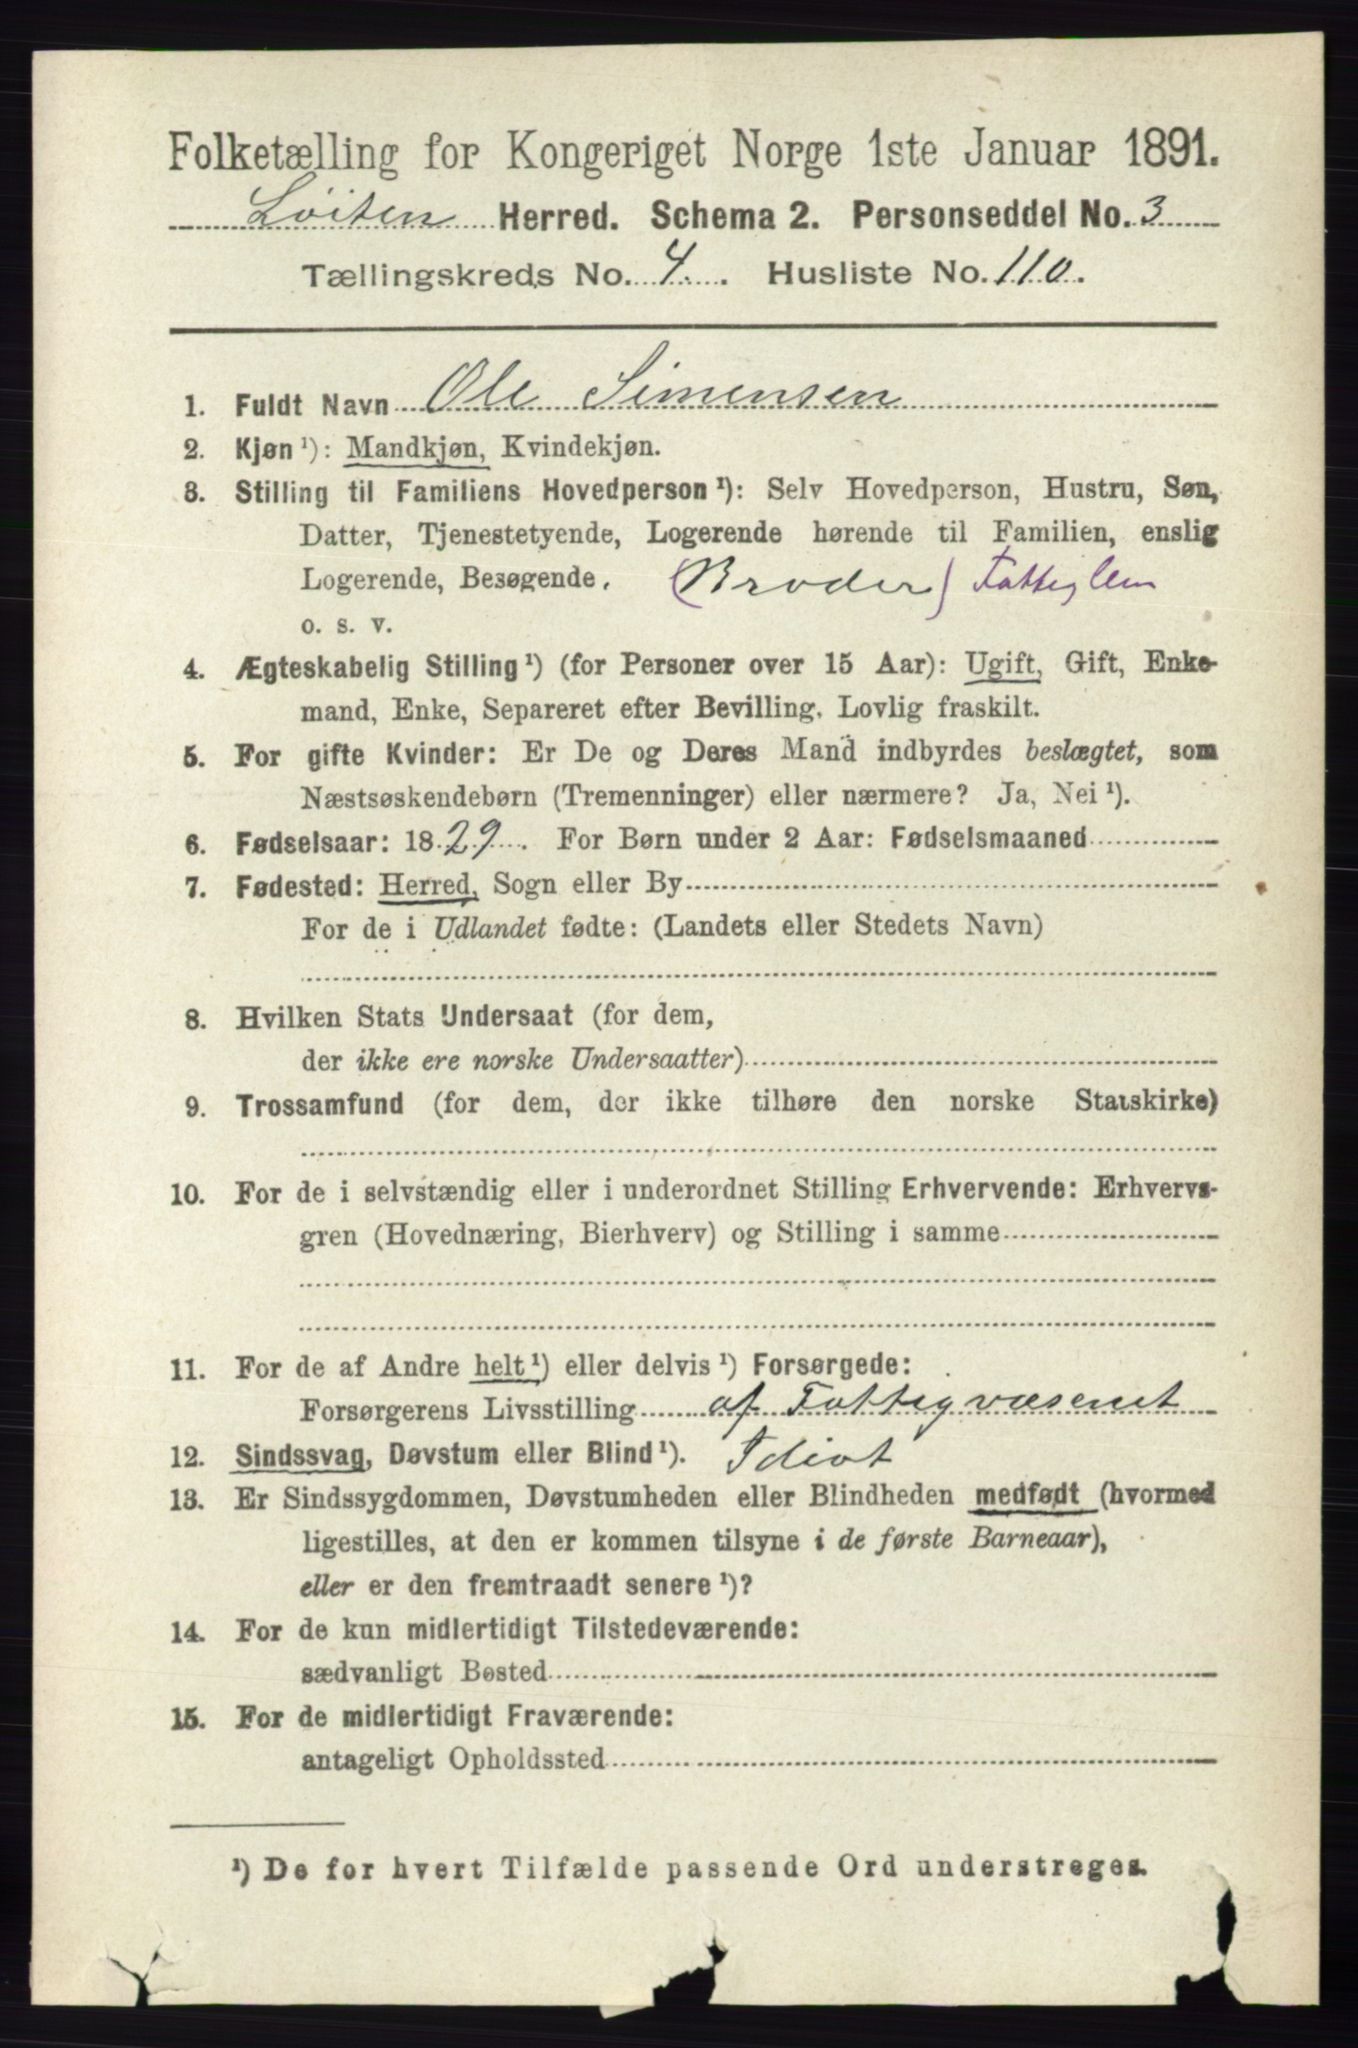 Folketælling for Kongeriget Norge 1ste Januar 1891.
Löiten Herred. Schema 2. Personseddel No. 3
Tællingskreds No. 4. Husliste No. 110.
1. Fuldt Navn Ole Simensen
2. Kjøn¹): Mandkjøn, Kvindekjøn.
3. Stilling til Familiens Hovedperson¹): Selv Hovedperson, Hustru, Søn,
Datter, Tjenestetyende, Logerende hørende til Familien, enslig
Logerende, Besøgende. (Broder) Fattiglem
o. s. v.
4. Ægteskabelig Stilling¹) (for Personer over 15 Aar): Ugift, Gift, Enke-
mand, Enke, Separeret efter Bevilling, Lovlig fraskilt.
5. For gifte Kvinder: Er De og Deres Mand indbyrdes beslægtet, som
Næstsøskendebørn (Tremenninger) eller nærmere? Ja, Nei¹).
6. Fødselsaar: 1829. For Børn under 2 Aar: Fødselsmaaned
7. Fødested: Herred, Sogn eller By
For de i Udlandet fødte: (Landets eller Stedets Navn)
8. Hvilken Stats Undersaat (for dem,
der ikke ere norske Undersaatter)
9. Trossamfund (for dem, der ikke tilhøre den norske Statskirke)
10. For de i selvstændig eller i underordnet Stilling Erhvervende: Erhvervs-
gren (Hovednæring, Bierhverv) og Stilling i samme
11. For de af Andre helt¹) eller delvis¹) Forsørgede:
Forsørgerens Livsstilling af Fattigvæsenet
12. Sindssvag, Døvstum eller Blind¹). Idiot
13. Er Sindssygdommen, Døvstumheden eller Blindheden medfødt (hvormed
ligestilles, at den er kommen tilsyne i de første Barneaar),
eller er den fremtraadt senere¹)?
14. For de kun midlertidigt Tilstedeværende:
sædvanligt Bosted
15. For de midlertidigt Fraværende:
antageligt Opholdssted
¹) De for hvert Tilfælde passende Ord understreges.